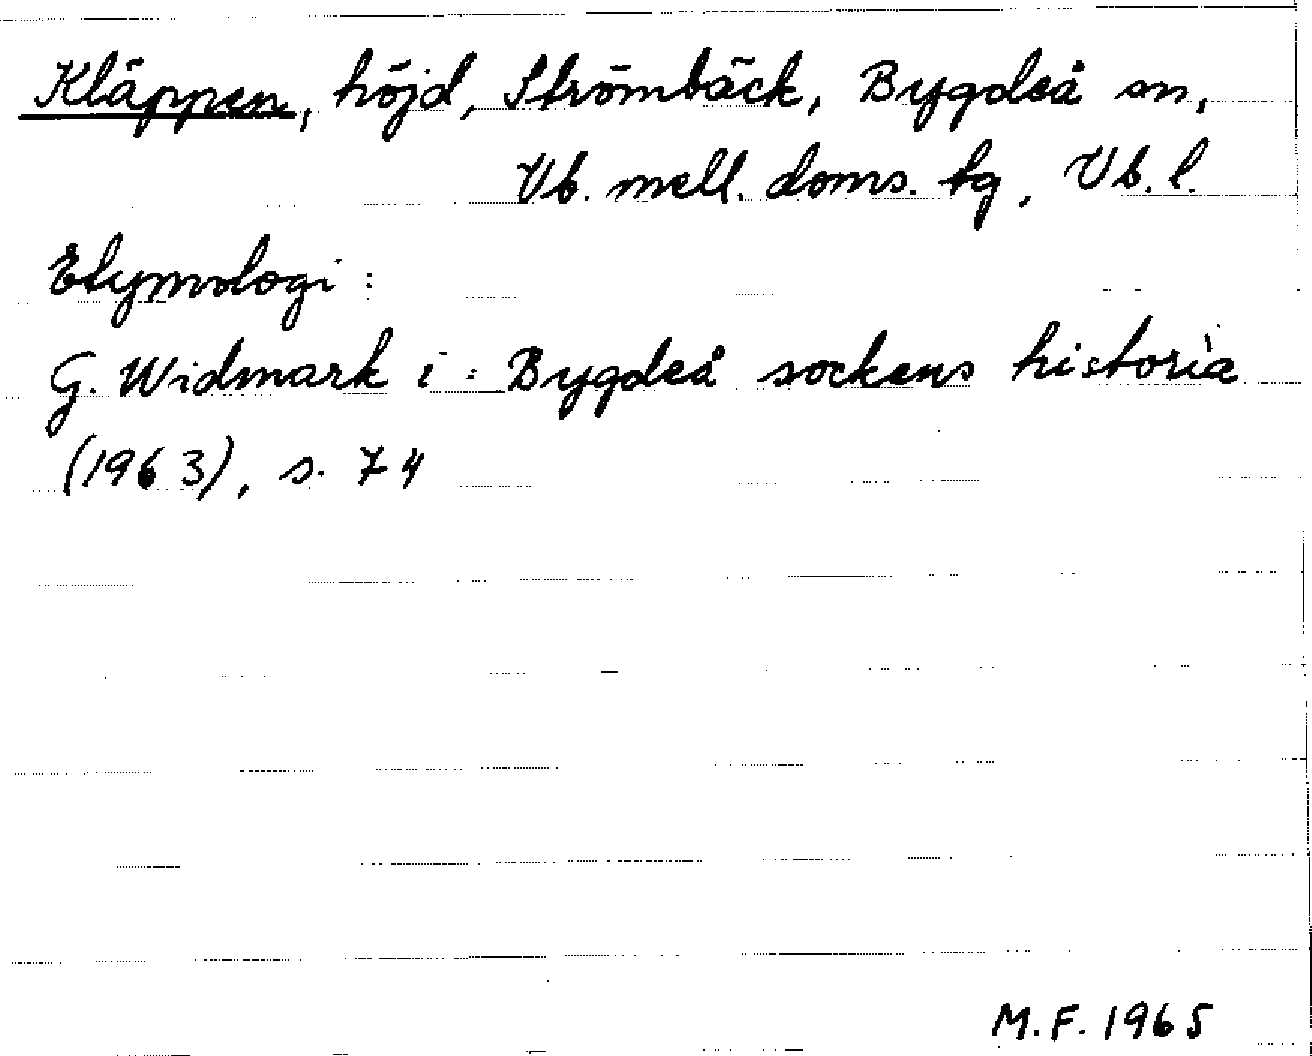 Kläppen, höjd, Strömbäck, Bygdeå sn,
Vb. mell. doms. tg, Vb. l.
Etymologi:
G. Widmark i: Bygdeå sockens historia
(1963), s. 74
M.F. 1965